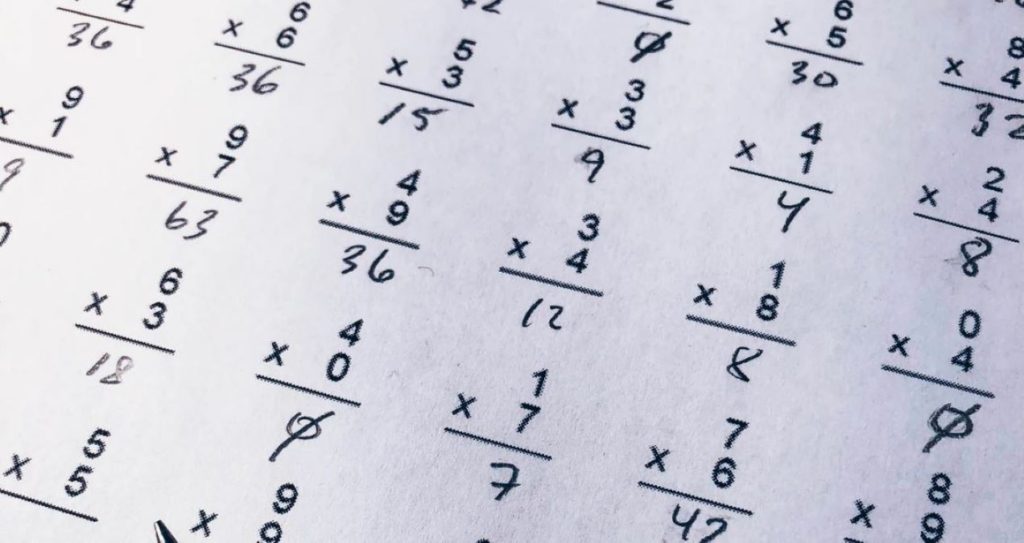 4
36
6
x 6
36
5
x 3
15
2
0
6
x 5
30
8
x 4
32
9
x 1
9
9
x 7
63
4
x 9
36
3
x 3
9
4
x 1
4
2
x 4
8
6
x 3
18
4
x 0
0
3
x 4
12
1
x 8
8
0
x 4
0
5
x 5
9
x 9
1
x 7
7
7
x 6
42
8
x 9